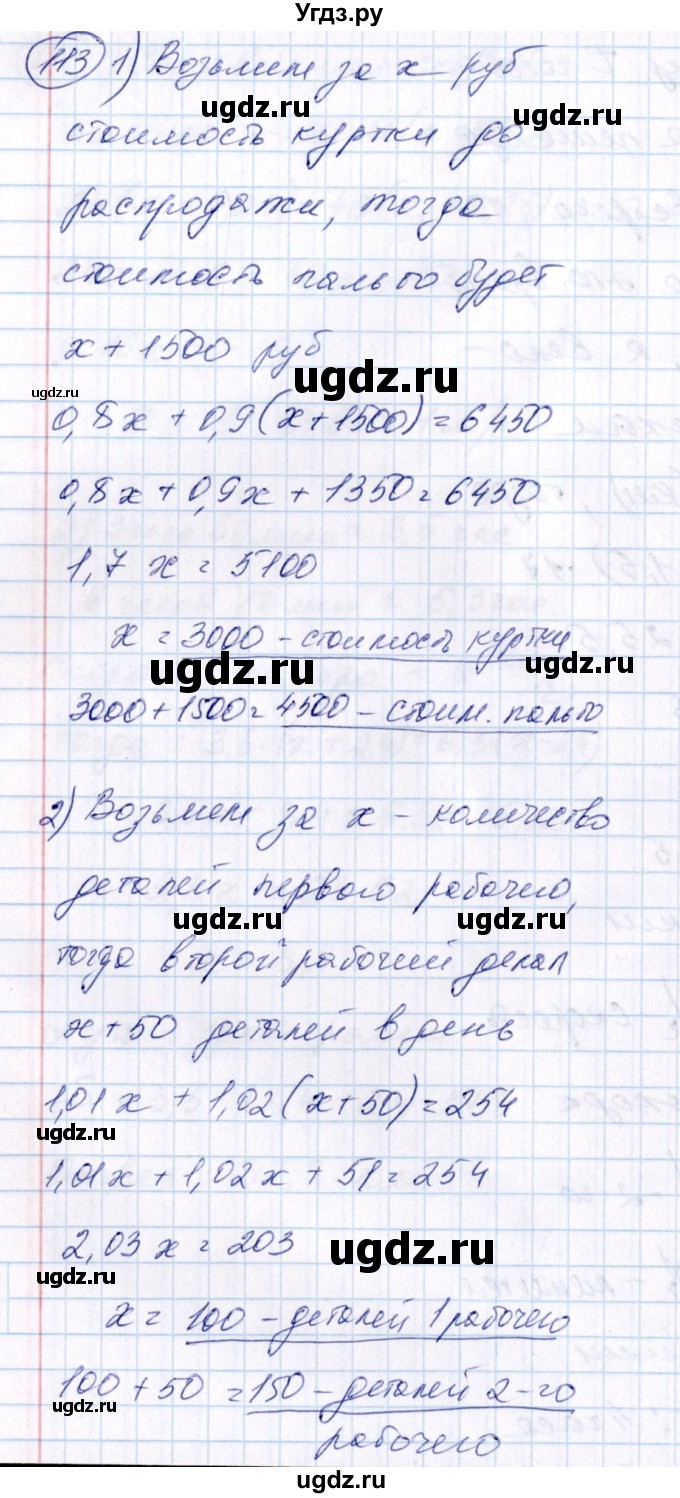 Угдз.ру
113 1) Возьмем за x руб
ugdz.ru ugdz.ru
стоимость куртки до
распродажи, тогда
стоимость пальто будет
x + 1500 руб
ugdz.ru ugdz.ru
0,8x + 0,9(x+1500) = 6450
0,8x + 0,9x + 1350 = 6450
1,7 x = 5100
x = 3000 - стоимость куртки
ugdz.ru ugdz.ru
3000 + 1500 = 4500 - стоим. пальто
2) Возьмем за x - количество
деталей первого рабочего,
ugdz.ru ugdz.ru
тогда второй рабочий делал
x + 50 деталей в день
1,01x + 1,02(x+50) = 254
ugdz.ru
1,01x + 1,02x + 51 = 254
2,03x = 203
ugdz.ru ugdz.ru
x = 100 - деталей 1 рабочего
100 + 50 = 150 - деталей 2-го
ugdz.ru ugdz.ru
рабочего
ugdz.ru